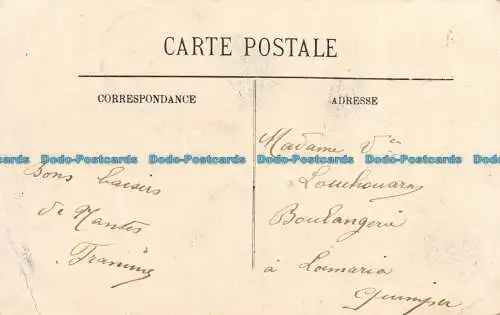 CARTE POSTALE
CORRESPONDANCE
ADRESSE
Dodo-Postcards Dodo-Postcards Dodo-Postcards Dodo-Postcards Dodo-Postcards Dodo-Postcards
Bons baisers
de Nantes
Madame Vve
Louchouarn
Boulangerie
à Lamaria
Quimper